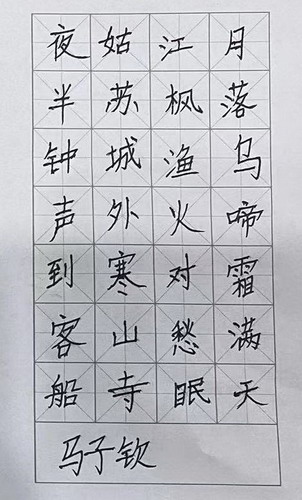 月落乌啼霜满天
江枫渔火对愁眠
姑苏城外寒山寺
夜半钟声到客船
马子钦